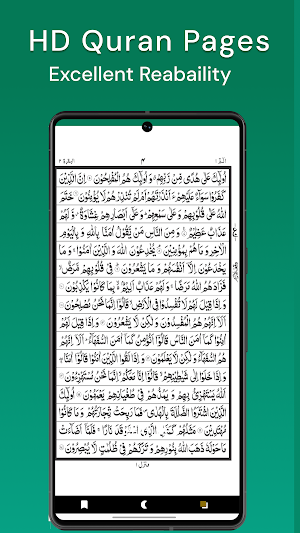 HD Quran Pages
Excellent Reabaility
الٓمّٓ ١ ٣ البقرة ٢
اُولٰٓئِكَ عَلٰى هُدًى مِّنْ رَّبِّهِمْ ۗ وَ اُولٰٓئِكَ هُمُ الْمُفْلِحُوْنَ ۝ اِنَّ الَّذِيْنَ
كَفَرُوْا سَوَآءٌ عَلَيْهِمْ ءَاَنْذَرْتَهُمْ اَمْ لَمْ تُنْذِرْهُمْ لَا يُؤْمِنُوْنَ ۝ خَتَمَ
اللّٰهُ عَلٰى قُلُوْبِهِمْ وَ عَلٰى سَمْعِهِمْ ؕ وَ عَلٰٓى اَبْصَارِهِمْ غِشَاوَةٌ ؗ وَّ لَهُمْ
عَذَابٌ عَظِيْمٌ ۝ وَ مِنَ النَّاسِ مَنْ يَّقُوْلُ اٰمَنَّا بِاللّٰهِ وَ بِالْيَوْمِ
الْاٰخِرِ وَ مَا هُمْ بِمُؤْمِنِيْنَ ۝ يُخٰدِعُوْنَ اللّٰهَ وَ الَّذِيْنَ اٰمَنُوْا ۚ وَ مَا
يَخْدَعُوْنَ اِلَّاۤ اَنْفُسَهُمْ وَ مَا يَشْعُرُوْنَ ۝ فِيْ قُلُوْبِهِمْ مَّرَضٌ ۙ
فَزَادَهُمُ اللّٰهُ مَرَضًا ۚ وَ لَهُمْ عَذَابٌ اَلِيْمٌۢ ۙ بِمَا كَانُوْا يَكْذِبُوْنَ ۝
وَ اِذَا قِيْلَ لَهُمْ لَا تُفْسِدُوْا فِي الْاَرْضِ ۙ قَالُوْۤا اِنَّمَا نَحْنُ مُصْلِحُوْنَ ۝
اَلَاۤ اِنَّهُمْ هُمُ الْمُفْسِدُوْنَ وَ لٰكِنْ لَّا يَشْعُرُوْنَ ۝ وَ اِذَا قِيْلَ لَهُمْ
اٰمِنُوْا كَمَاۤ اٰمَنَ النَّاسُ قَالُوْۤا اَنُؤْمِنُ كَمَاۤ اٰمَنَ السُّفَهَآءُ ؕ اَلَاۤ اِنَّهُمْ
هُمُ السُّفَهَآءُ وَ لٰكِنْ لَّا يَعْلَمُوْنَ ۝ وَ اِذَا لَقُوا الَّذِيْنَ اٰمَنُوْا قَالُوْۤا اٰمَنَّا ۚ
وَ اِذَا خَلَوْا اِلٰى شَيٰطِيْنِهِمْ ۙ قَالُوْۤا اِنَّا مَعَكُمْ ۙ اِنَّمَا نَحْنُ مُسْتَهْزِءُوْنَ ۝
اَللّٰهُ يَسْتَهْزِئُ بِهِمْ وَ يَمُدُّهُمْ فِيْ طُغْيَانِهِمْ يَعْمَهُوْنَ ۝ اُولٰٓئِكَ
الَّذِيْنَ اشْتَرَوُا الضَّلٰلَةَ بِالْهُدٰى ۪ فَمَا رَبِحَتْ تِّجَارَتُهُمْ وَ مَا كَانُوْا
مُهْتَدِيْنَ ۝ مَثَلُهُمْ كَمَثَلِ الَّذِي اسْتَوْقَدَ نَارًا ۚ فَلَمَّاۤ اَضَآءَتْ
مَا حَوْلَهٗ ذَهَبَ اللّٰهُ بِنُوْرِهِمْ وَ تَرَكَهُمْ فِيْ ظُلُمٰتٍ لَّا يُبْصِرُوْنَ ۝
منزل ١